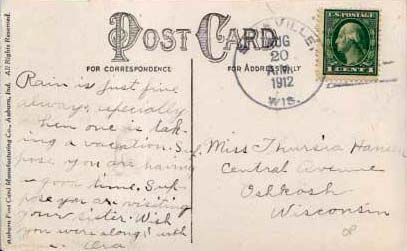 Auburn Post Card Manufacturing Co., Auburn, Ind. All Rights Reserved.
POST CARD
FOR CORRESPONDENCE
FOR ADDRESS ONLY
VILLE
AUG
20
AM
1912
WIS.
U.S. POSTAGE
1 CENT 1
Rain is just fine
always, especially
when one is tak-
ing a vacation. Sup-
pose you are having
a good time. Sup-
pose you are visiting
your sister. Wish
you were along with
Miss Hansen
Central Avenue
Oshkosh
Wisconsin